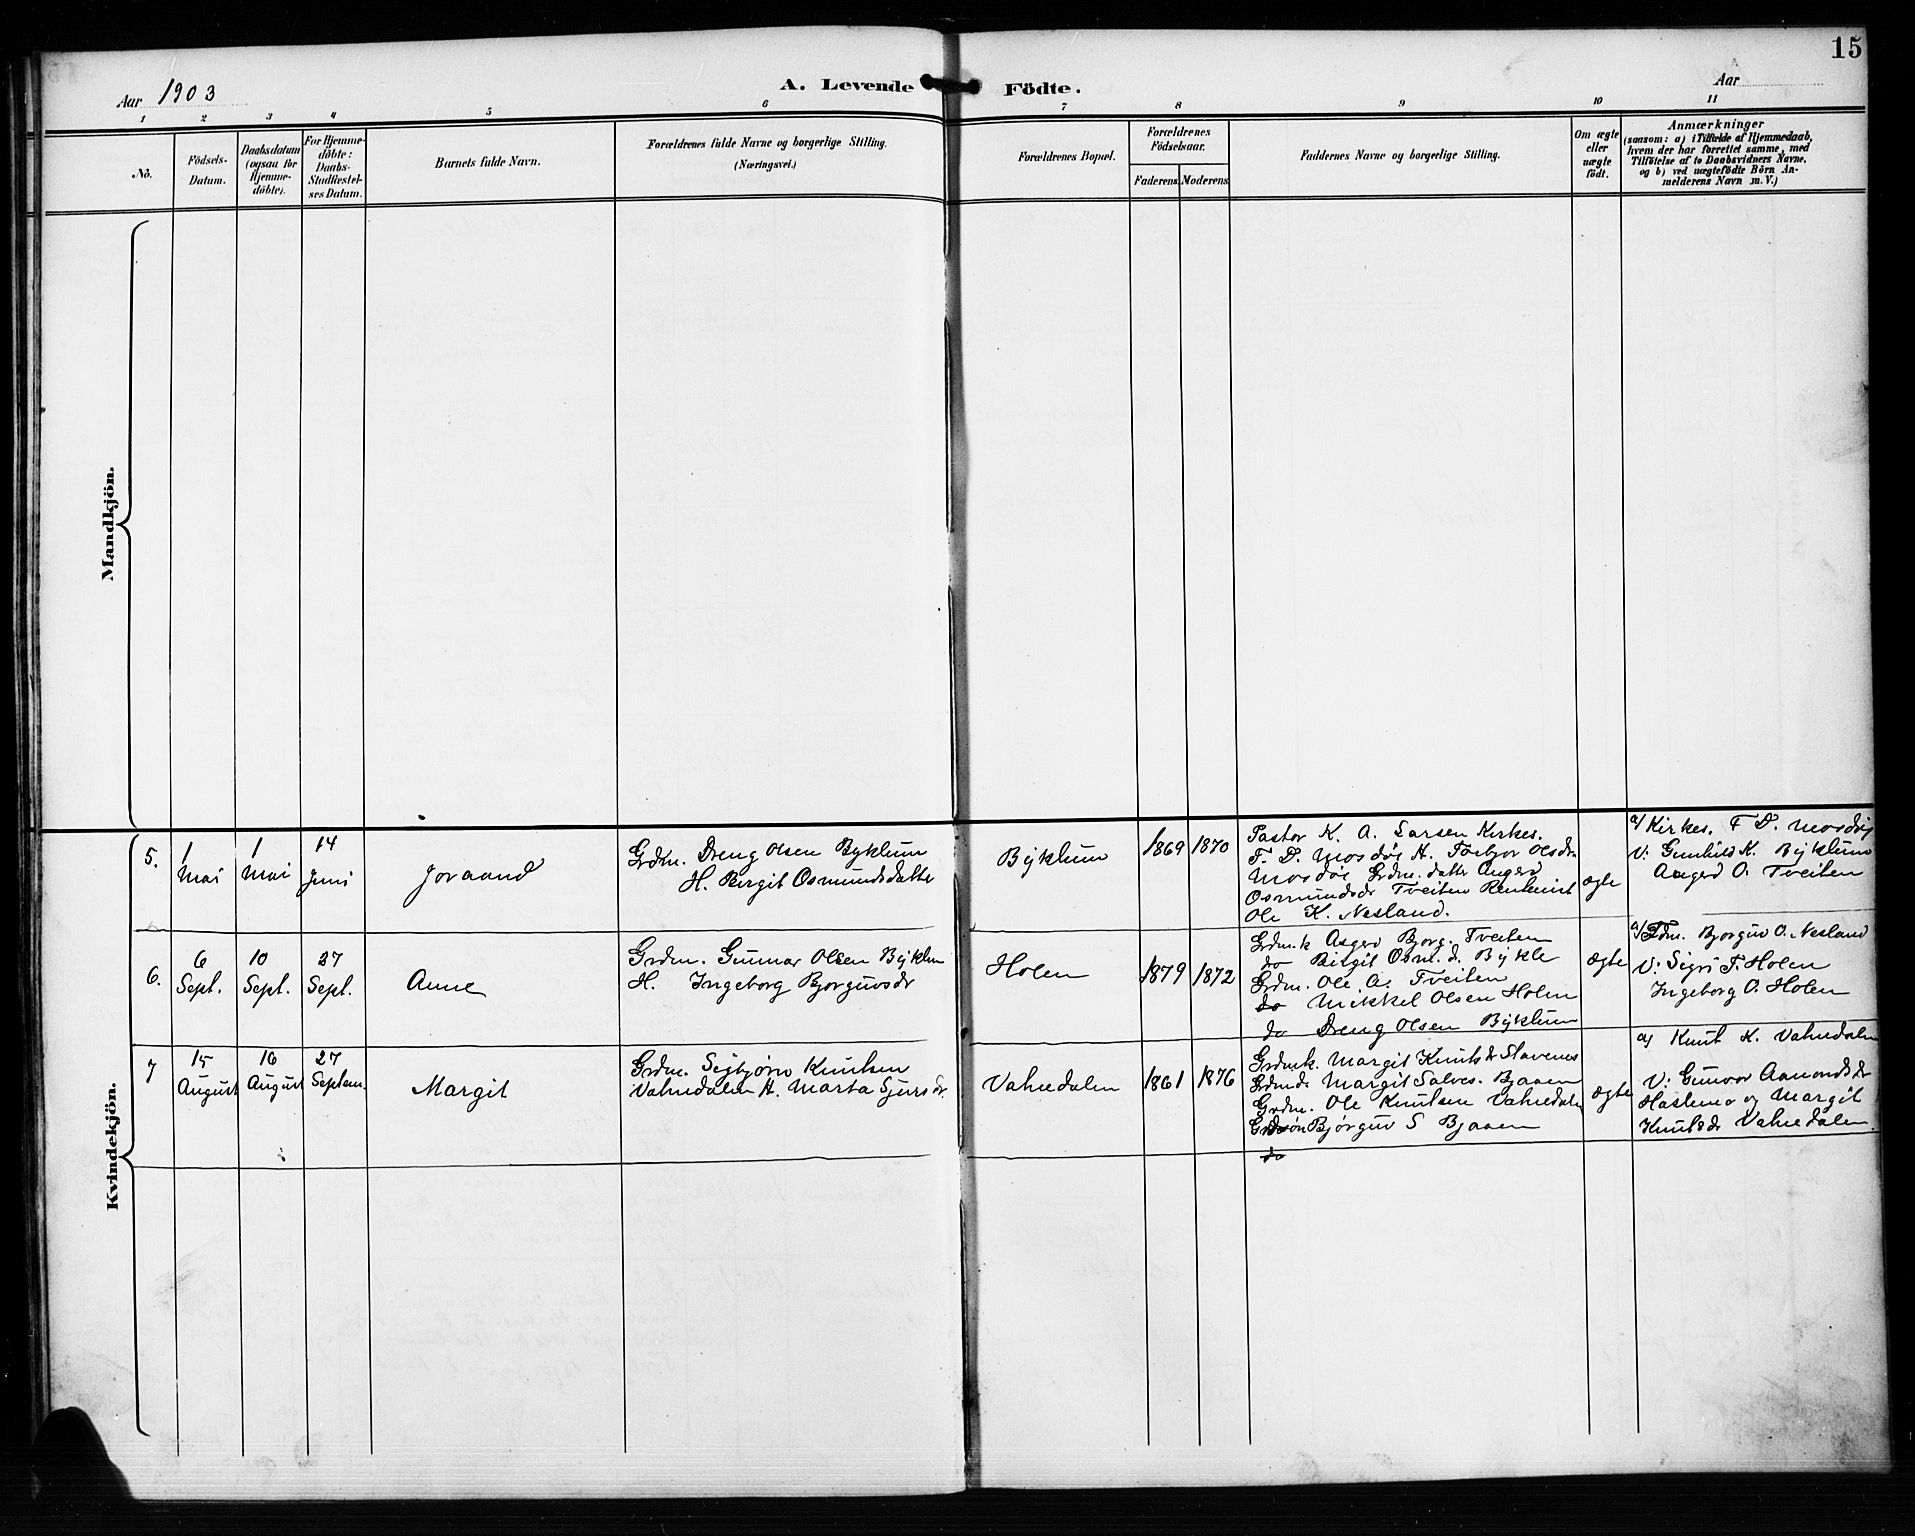 15
Aar 1903
A. Levende Födte.
Aar
1 2 3 4 5 6 7 8 9 10 11
No.
Födsels-
Datum.
Daabsdatum
(ogsaa for
Hjemme-
döbte).
For Hjemme-
döbte:
Daabs-
Stadfæstel-
ses Datum.
Barnets fulde Navn.
Forældrenes fulde Navne og borgerlige Stilling.
(Næringsvei.)
Forældrenes Bopæl.
Forældrenes
Födselsaar.
Faderens.
Moderens.
Faddernes Navne og borgerlige Stilling.
Om ægte
eller
uægte
födt.
Anmærkninger
(saasom: a) i Tilfælde af Hjemmedaab,
hvem der har forrettet samme, med
Tilföielse af to Daabsvidners Navne,
og b) ved uægtefödte Börn An-
melderens Navn m. V.)
Mandkjön.
Kvindekjön.
5.
1
Mai
1
Mai
14
Juni
Joraand
Grdm. Dreng Olsen Byklum
H. Birgit Osmundsdatter
Byklum
1869
1870
Pastor K. A. Larsen Kirkes.
T. D. Mosdøl H. Torbjor Olsdr.
Mosdøl Grdm. datter Anger
Osmundsdr Tveiten
Ole K. Nesland.
ægte
a/ Kirkes. T D. Mosdøl
V: Gunhild K. Byklum
Anger O. Tveiten
6.
6
Sept.
10
Sept.
27
Sept.
Anne
Grdm. Gunnar Olsen Byklum
H. Ingeborg Bjorguvsdr
Holen
1879
1872
Grdm.k Asger Bjorg. Tveiten
do Birgit Osm. d. Bykle
Grdm. Ole A. Tveiten
do Mikkel Olsen Holen
do Dreng Olsen Byklum
ægte
a/ Grdm. Bjorguv O. Nesland
V: Sigri T. Holen
Ingeborg O. Holen
7
15
August
16
August
27
Septem.
Margit
Grdm. Sigbjørn Knutsen
Vatnedalen H. Marta Sjursdr.
Vatnedalen
1861
1876
Grdmk. Margit Knutsdr Stavenes
Grdmd. Margit Salves. Bjaaen
Grdm. Ole Knutsen Vatnedalen
Grdsøn Bjørguv S Bjaaen
do
ægte
a) Knut K. Vatnedalen
V: Gunvor Aamondsdr
Haslemo og Margit
Knutsdr Vatnedalen.